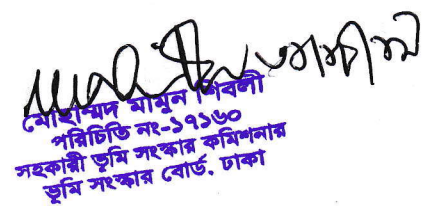 মোহাম্মদ মামুন শিবলী
পরিচিতি নং-১৭১৬০
সহকারী ভূমি সংস্কার কমিশনার
ভূমি সংস্কার বোর্ড, ঢাকা